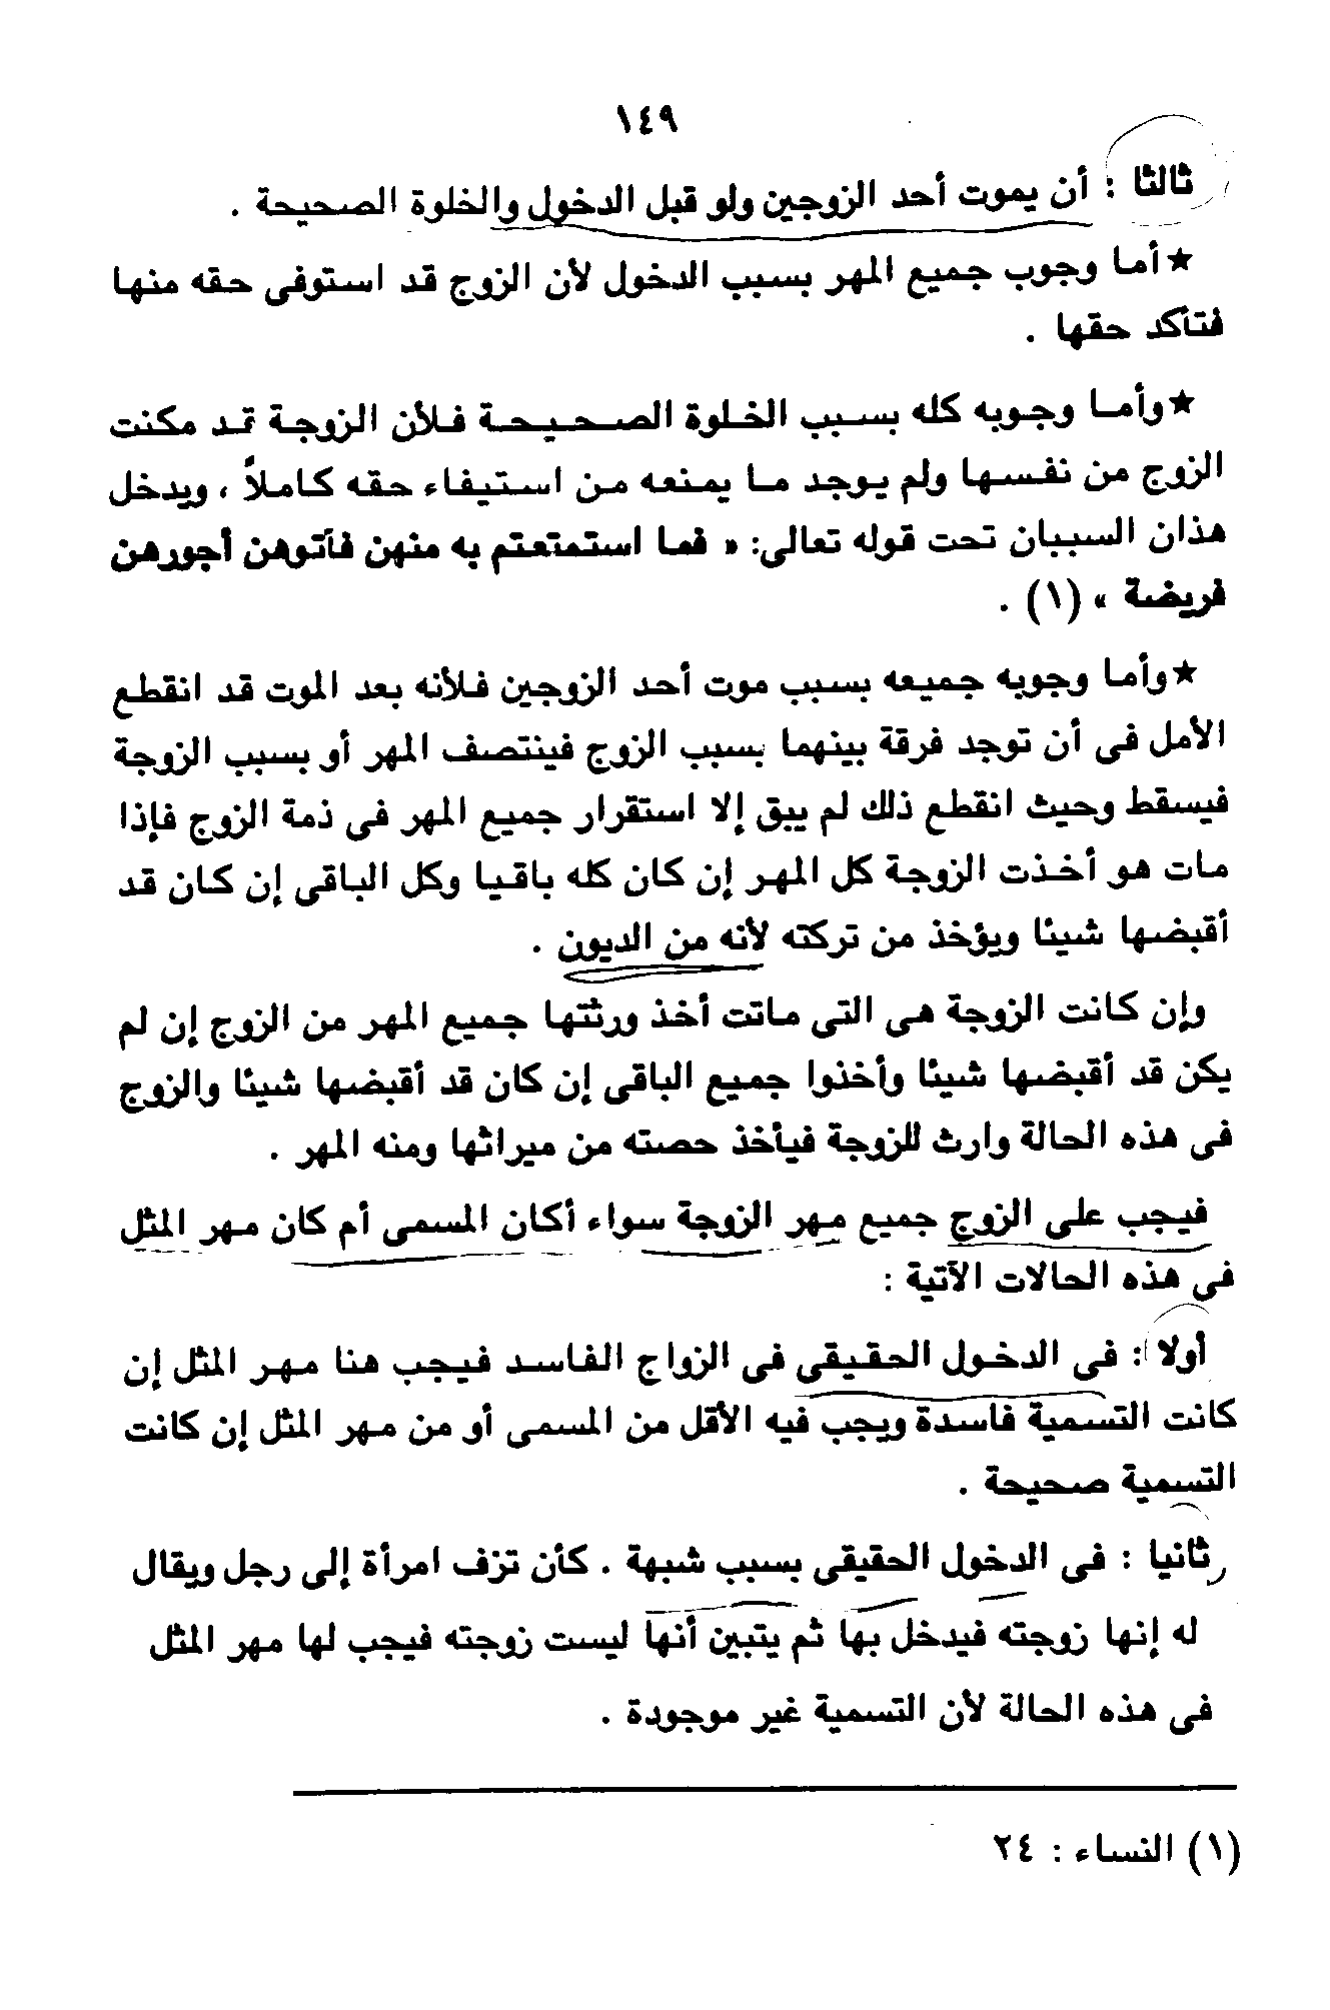 ١٤٩
ثالثا : أن يموت أحد الزوجين ولو قبل الدخول والخلوة الصحيحة .
★ أما وجوب جميع المهر بسبب الدخول لأن الزوج قد استوفى حقه منها
فتأكد حقها .
★ وأما وجوبه كله بسبب الخلوة الصحيحة فلأن الزوجة قد مكنت
الزوج من نفسها ولم يوجد ما يمنعه من استيفاء حقه كاملاً ، ويدخل
هذان السببان تحت قوله تعالى: « فما استمتعتم به منهن فآتوهن أجورهن
فريضة » (١) .
★ وأما وجوبه جميعه بسبب موت أحد الزوجين فلأنه بعد الموت قد انقطع
الأمل فى أن توجد فرقة بينهما بسبب الزوج فينتصف المهر أو بسبب الزوجة
فيسقط وحيث انقطع ذلك لم يبق إلا استقرار جميع المهر فى ذمة الزوج فإذا
مات هو أخذت الزوجة كل المهر إن كان كله باقيا وكل الباقى إن كان قد
أقبضها شيئا ويؤخذ من تركته لأنه من الديون .
وإن كانت الزوجة هى التى ماتت أخذ ورثتها جميع المهر من الزوج إن لم
يكن قد أقبضها شيئا وأخذوا جميع الباقى إن كان قد أقبضها شيئا والزوج
فى هذه الحالة وارث للزوجة فيأخذ حصته من ميراثها ومنه المهر .
فيجب على الزوج جميع مهر الزوجة سواء أكان المسمى أم كان مهر المثل
فى هذه الحالات الآتية :
أولا : فى الدخول الحقيقى فى الزواج الفاسد فيجب هنا مهر المثل إن
كانت التسمية فاسدة ويجب فيه الأقل من المسمى أو من مهر المثل إن كانت
التسمية صحيحة .
ثانيا : فى الدخول الحقيقى بسبب شبهة . كأن تزف امرأة إلى رجل ويقال
له إنها زوجته فيدخل بها ثم يتبين أنها ليست زوجته فيجب لها مهر المثل
فى هذه الحالة لأن التسمية غير موجودة .
(١) النساء : ٢٤